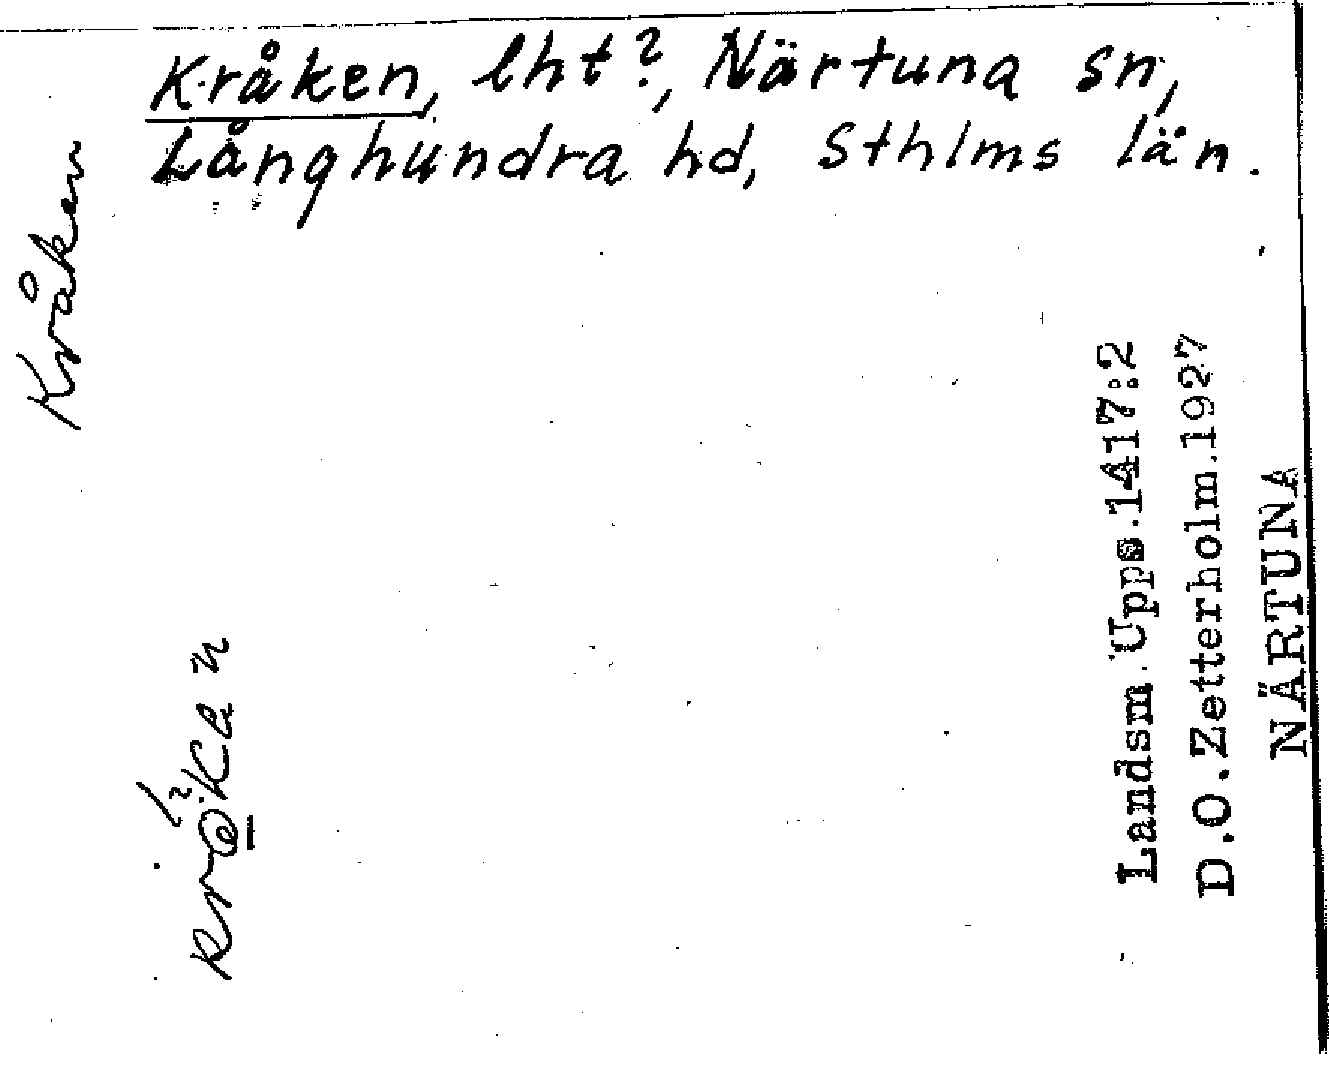 Kråken, lht?, Närtuna sn,
Långhundra hd, Sthlms län.
Kråken
Landsm. Upps. 1417:2
D.O. Zetterholm. 1927
NÄRTUNA